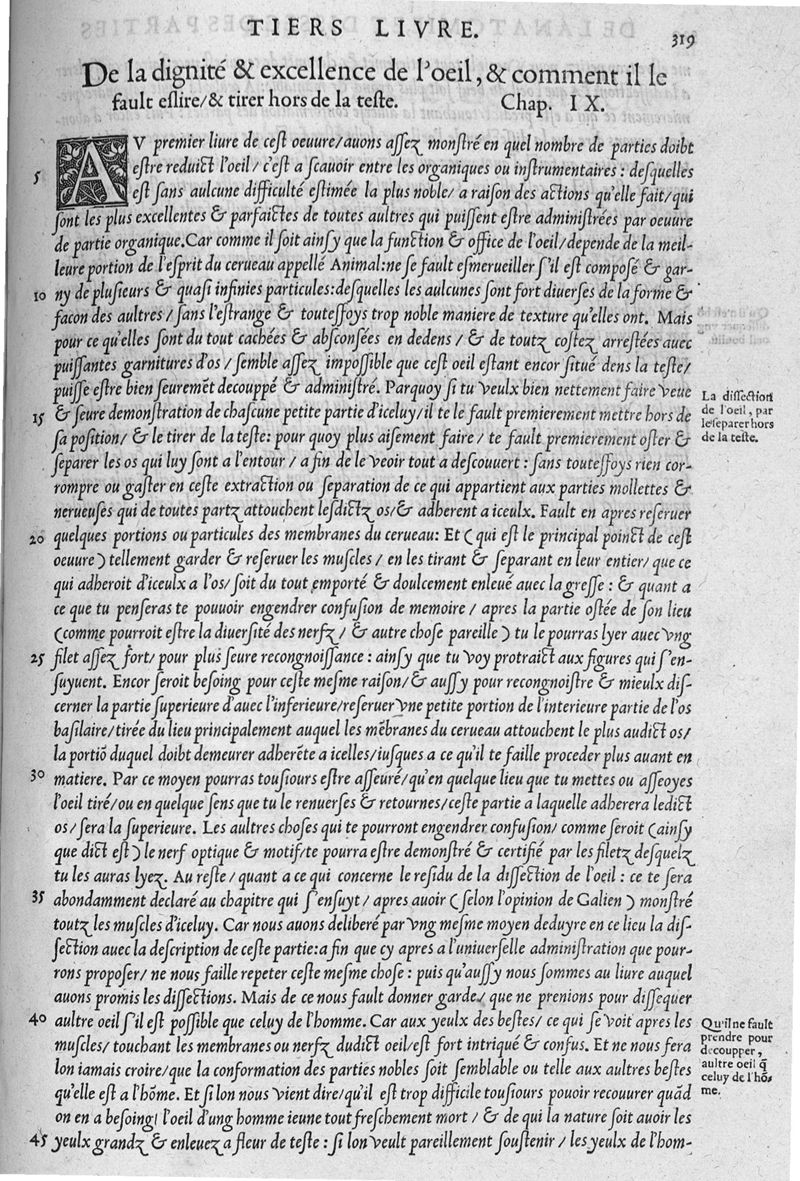 TIERS LIVRE.
319
De la dignité & excellence de l'oeil, & comment il le
fault eslire/& tirer hors de la teste. Chap. IX.
AV premier liure de cest oeuure/auons assez monstré en quel nombre de parties doibt
5 estre reduict l'oeil/ c'est a scauoir entre les organiques ou instrumentaires : desquelles
est sans aulcune difficulté estimée la plus noble/ a raison des actions qu'elle fait/qui
sont les plus excellentes & parfaictes de toutes aultres qui puissent estre administrées par oeuure
de partie organique.Car comme il soit ainsy que la function & office de l'oeil/depende de la meil-
leure portion de l'esprit du cerueau appellé Animal:ne se fault esmerueiller s'il est composé & gar-
10 ny de plusieurs & quasi infinies particules:desquelles les aulcunes sont fort diuerses de la forme &
facon des aultres/ sans l'estrange & toutessoys trop noble maniere de texture qu'elles ont. Mais
pour ce qu'elles sont du tout cachées & absconsées en dedens / & de toutz costez arrestées auec
puissantes garnitures d'os / semble assez impossible que cest oeil estant encor situé dens la teste/
puisse estre bien seuremēt decouppé & administré. Parquoy si tu veulx bien nettement faire veue
15 & seure demonstration de chascune petite partie d'iceluy/il te le fault premierement mettre hors de
sa position/ & le tirer de la teste: pour quoy plus aisement faire / te fault premierement oster &
separer les os qui luy sont a l'entour / a fin de le veoir tout a descouuert : sans toutessoys rien cor-
rompre ou gaster en ceste extraction ou separation de ce qui appartient aux parties mollettes &
nerueuses qui de toutes partz attouchent lesdictz os/& adherent a iceulx. Fault en apres reseruer
20 quelques portions ou particules des membranes du cerueau: Et ( qui est le principal poinct de cest
oeuure ) tellement garder & reseruer les muscles / en les tirant & separant en leur entier/ que ce
qui adheroit d'iceulx a l'os/ soit du tout emporté & doulcement enleué auec la gresse : & quant a
ce que tu penseras te pouuoir engendrer confusion de memoire / apres la partie ostée de son lieu
(comme pourroit estre la diuersité des nerfz / & autre chose pareille ) tu le pourras lyer auec vng
25 filet assez fort/ pour plus seure recongnoissance : ainsy que tu voy protraict aux figures qui s'en-
suyuent. Encor seroit besoing pour ceste mesme raison/ & aussy pour recongnoistre & mieulx dis-
cerner la partie superieure d'auec l'inferieure/reseruer vne petite portion de l'interieure partie de l'os
basilaire/tirée du lieu principalement auquel les mēbranes du cerueau attouchent le plus audict os/
la portiō duquel doibt demeurer adherēte a icelles/iusques a ce qu'il te faille proceder plus auant en
30 matiere. Par ce moyen pourras tousiours estre asseuré/qu'en quelque lieu que tu mettes ou asseoyes
l'oeil tiré/ou en quelque sens que tu le renuerses & retournes/ceste partie a laquelle adherera ledict
os/ sera la superieure. Les aultres choses qui te pourront engendrer confusion/ comme seroit (ainsy
que dict est) le nerf optique & motif/te pourra estre demonstré & certifié par les filetz desquelz
tu les auras lyez. Au reste/ quant a ce qui concerne le residu de la dissection de l'oeil : ce te sera
35 abondamment declaré au chapitre qui s'ensuyt/ apres auoir ( selon l'opinion de Galien ) monstré
toutz les muscles d'iceluy. Car nous auons deliberé par vng mesme moyen deduyre en ce lieu la dis-
section auec la description de ceste partie:a fin que cy apres a l'uniuerselle administration que pour-
rons proposer/ ne nous faille repeter ceste mesme chose : puis qu'aussy nous sommes au liure auquel
auons promis les dissections. Mais de ce nous fault donner garde/ que ne prenions pour dissequer
40 aultre oeil s'il est possible que celuy de l'homme. Car aux yeulx des bestes/ ce qui se voit apres les
muscles/ touchant les membranes ou nerfz dudict oeil/est fort intriqué & confus. Et ne nous fera
lon iamais croire/que la conformation des parties nobles soit semblable ou telle aux aultres bestes
qu'elle est a l'hōme. Et si lon nous vient dire/qu'il est trop difficile tousiours pouoir recouurer quād
on en a besoing/ l'oeil d'ung homme ieune tout freschement mort / & de qui la nature soit auoir les
45 yeulx grandz & enleuez a fleur de teste : si lon veult pareillement soustenir / les yeulx de l'hom-
La dissection
de l'oeil, par
le separer hors
de la teste.
Qu'il ne fault
prendre pour
decoupper,
aultre oeil q̄
celuy de l'hō-
me.